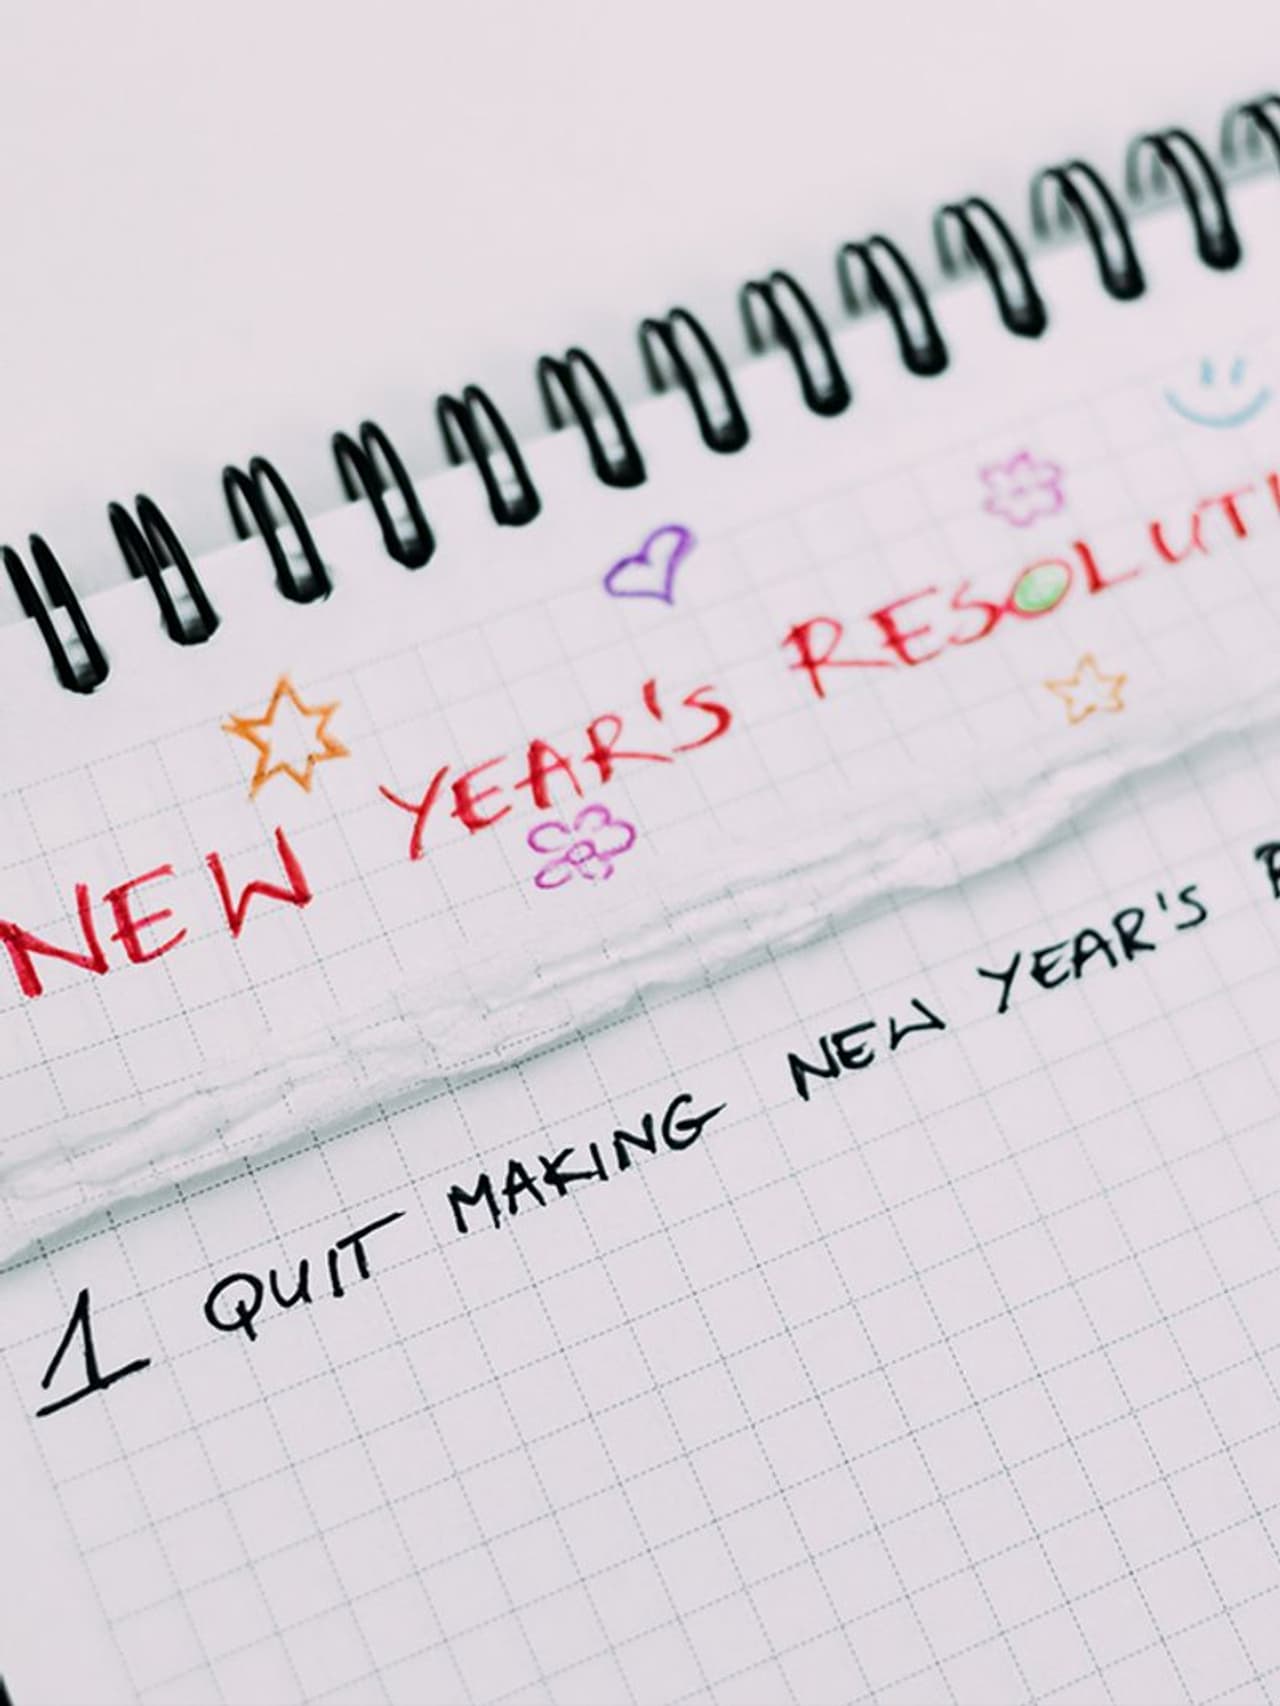 NEW YEAR'S RESOLUTI
1 QUIT MAKING NEW YEAR'S R